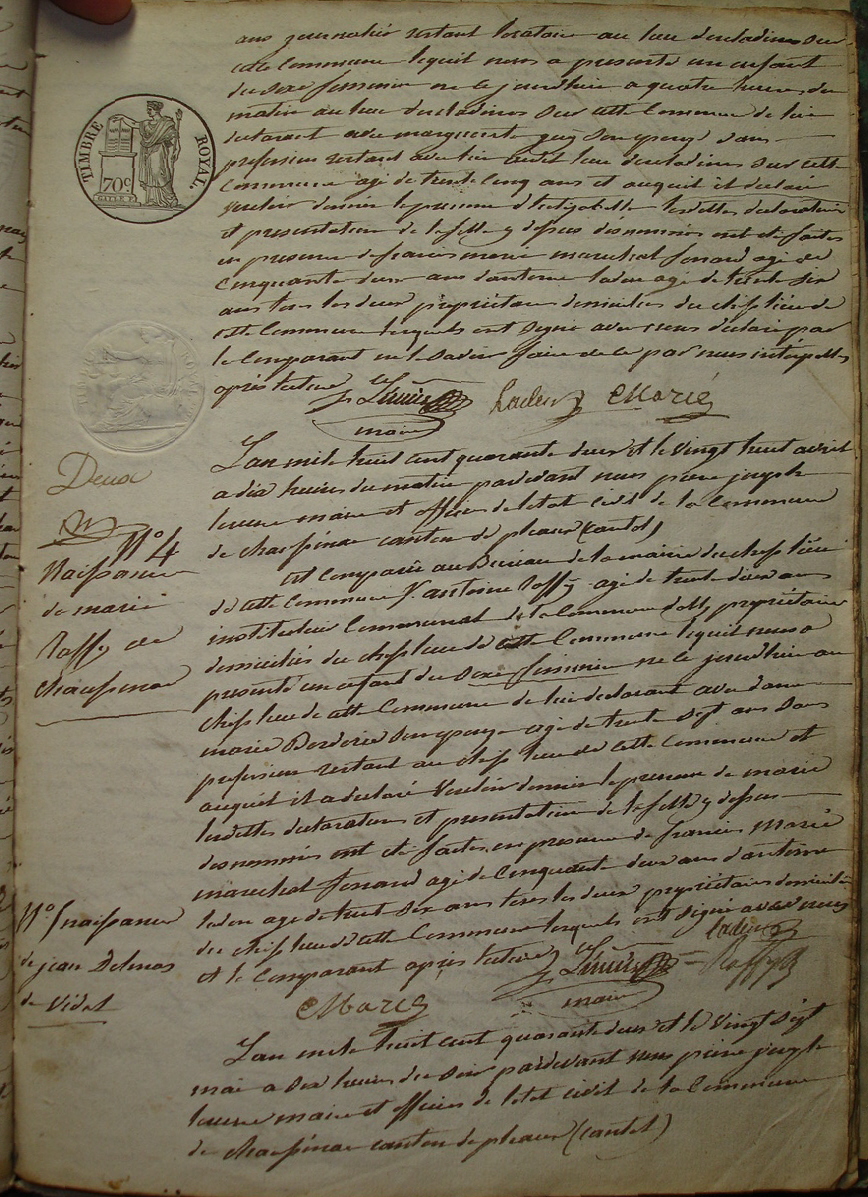 TIMBRE ROYAL
70c
ans journalier restant locataire au lieu desclidines sur
cette Commune lequel nous a presenté un enfant
du sexe feminin né le jourdhier a quatre heures du
matin au lieu desclidines sur cette Commune de lui
declarant avec marguerite son epouse sans
profession restant avec lui audit lieu desclidines sur cette
Commune agé de trente Cinq ans et auquel il declare
vouloir donner le prenom lesdittes declaration
et presentation de la fille y dessus denommés ont été faites
en presence de francois marie marechal ferrand agé de
Cinquante deux ans dantoine agé de trente six
ans tous les deux propriétaires domiciliés du chef lieu de
cette Commune lesquels ont signé avec nous declaré par
le Comparant ne le savoir faire de ce par nous interpellé
après lecture
maire
Marié
Deux
Lan mil huit cent quarante deux et le vingt huit avril
a dix heures du matin pardevant nous pierre joseph
maire et officier de letat civil de la Commune
de chaussenac canton de pleaux (cantal)
N° 4
Naissance
de marie
Raffy de
Chaussenac
est Comparu au Bureau de la mairie du chef lieu
de cette Commune S. antoine Raffy agé de trente deux ans
instituteur Communal de la Commune propriétaire
domicilié du chef lieu de cette Commune lequel nous a
presenté un enfant du Sexe feminin né le jourdhier au
chef lieu de cette Commune de lui declarant avec dame
marie Borderie son epouse agé de trente Sept ans Sans
profession restant au chef lieu de cette Commune et
auquel il a declaré Vouloir donner le prenom de marie
lesdittes declaration et presentation de la fille y dessus
denommés ont été faites en presence de francois Marié
marechal ferrand agé de Cinquante deux ans dantoine
agé de trente Six ans tous les deux propriétaires domiciliés
du chef lieu de cette Commune lesquels ont signé avec nous
et le Comparant après lecture
maire
Raffy
Marié
N° 5 naissance
de jean Delmas
de Vidal
Lan mil huit cent quarante deux et le vingt Sept
mai a Six heures du Soir pardevant nous pierre joseph
maire et officier de letat civil de la Commune
de chaussenac canton de pleaux (cantal)